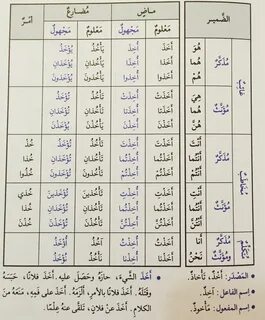 الضَّمير ماضٍ مُضارِعٌ أمْرٌ
مَعْلومٌ مَجْهولٌ مَعْلومٌ مَجْهولٌ
غائِبٌ
مُذَكَّرٌ
هُوَ أَخَذَ أُخِذَ يَأْخُذُ يُؤْخَذُ
هُما أَخَذا أُخِذا يَأْخُذانِ يُؤْخَذانِ
هُم أَخَذوا أُخِذوا يَأْخُذونَ يُؤْخَذونَ
مُؤَنَّثٌ
هِيَ أَخَذَتْ أُخِذَتْ تَأْخُذُ تُؤْخَذُ
هُما أَخَذَتا أُخِذَتا تَأْخُذانِ تُؤْخَذانِ
هُنَّ أَخَذْنَ أُخِذْنَ يَأْخُذْنَ يُؤْخَذْنَ
مُخاطَبٌ
مُذَكَّرٌ
أَنْتَ أَخَذْتَ أُخِذْتَ تَأْخُذُ تُؤْخَذُ خُذْ
أَنْتُما أَخَذْتُما أُخِذْتُما تَأْخُذانِ تُؤْخَذانِ خُذا
أَنْتُم أَخَذْتُم أُخِذْتُم تَأْخُذونَ تُؤْخَذونَ خُذوا
مُؤَنَّثٌ
أَنْتِ أَخَذْتِ أُخِذْتِ تَأْخُذينَ تُؤْخَذينَ خُذي
أَنْتُما أَخَذْتُما أُخِذْتُما تَأْخُذانِ تُؤْخَذانِ خُذا
أَنْتُنَّ أَخَذْتُنَّ أُخِذْتُنَّ تَأْخُذْنَ تُؤْخَذْنَ خُذْنَ
مُتَكَلِّمٌ
مُذَكَّرٌ ومُؤَنَّثٌ
أنا أَخَذْتُ أُخِذْتُ آخُذُ أُوخَذُ
نَحْنُ أَخَذْنا أُخِذْنا نَأْخُذُ نُؤْخَذُ
• المَصْدَر: أَخْذٌ، تَأْخاذٌ.
• اِسم الفاعل: آخِذٌ.
• اِسم المفعول: مأخوذٌ.
• أَخَذَ الشَّيْءَ، حازَهُ وحَصَلَ عليه. أَخَذَ فلانًا، حَبَسَهُ
وقَتَلَهُ. أَخَذَ فلانًا بالأمرِ، أَلْزَمَهُ. أَخَذَ على فَمِهِ، مَنَعَهُ مِنَ
الكلامِ. أَخَذَ عَنْ فلانٍ، تَلَقّى عَنْهُ عِلْمًا.